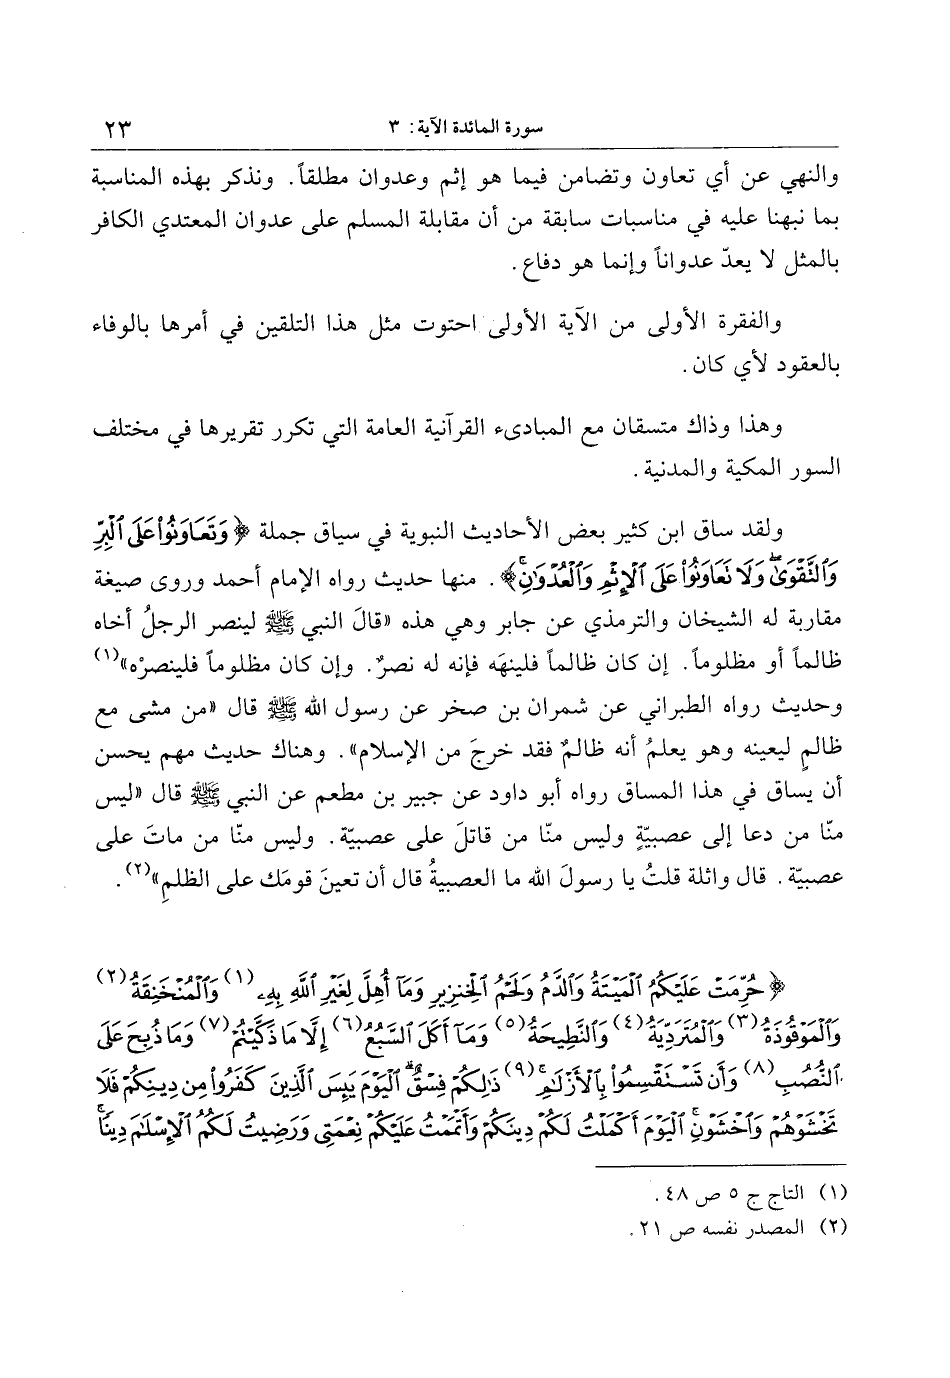 سورة المائدة الآية: ٣ ٢٣
والنهي عن أي تعاون وتضامن فيما هو إثم وعدوان مطلقاً. ونذكر بهذه المناسبة
بما نبهنا عليه في مناسبات سابقة من أن مقابلة المسلم على عدوان المعتدي الكافر
بالمثل لا يعدّ عدواناً وإنما هو دفاع.
والفقرة الأولى من الآية الأولى احتوت مثل هذا التلقين في أمرها بالوفاء
بالعقود لأي كان.
وهذا وذاك متسقان مع المبادىء القرآنية العامة التي تكرر تقريرها في مختلف
السور المكية والمدنية.
ولقد ساق ابن كثير بعض الأحاديث النبوية في سياق جملة ﴿وَتَعَاوَنُوا۟ عَلَى ٱلْبِرِّ
وَٱلتَّقْوَىٰۖ وَلَا تَعَاوَنُوا۟ عَلَى ٱلْإِثْمِ وَٱلْعُدْوَٰنِۚ﴾. منها حديث رواه الإمام أحمد وروى صيغة
مقاربة له الشيخان والترمذي عن جابر وهي هذه «قالَ النبي ﷺ لينصر الرجلُ أخاه
ظالماً أو مظلوماً. إن كان ظالماً فلينهَه فإنه له نصرٌ. وإن كان مظلوماً فلينصرْه»(١)
وحديث رواه الطبراني عن شمران بن صخر عن رسول الله ﷺ قال «من مشى مع
ظالمٍ ليعينه وهو يعلمُ أنه ظالمٌ فقد خرجَ من الإسلام». وهناك حديث مهم يحسن
أن يساق في هذا المساق رواه أبو داود عن جبير بن مطعم عن النبي ﷺ قال «ليس
منّا من دعا إلى عصبيّةٍ وليس منّا من قاتلَ على عصبيّة. وليس منّا من ماتَ على
عصبيّة. قال واثلة قلتُ يا رسولَ الله ما العصبيةُ قال أن تعينَ قومَك على الظلمِ»(٢).
﴿حُرِّمَتْ عَلَيْكُمُ ٱلْمَيْتَةُ وَٱلدَّمُ وَلَحْمُ ٱلْخِنزِيرِ وَمَآ أُهِلَّ لِغَيْرِ ٱللَّهِ بِهِۦ (١) وَٱلْمُنْخَنِقَةُ (٢)
وَٱلْمَوْقُوذَةُ (٣) وَٱلْمُتَرَدِّيَةُ (٤) وَٱلنَّطِيحَةُ (٥) وَمَآ أَكَلَ ٱلسَّبُعُ (٦) إِلَّا مَا ذَكَّيْتُمْ (٧) وَمَا ذُبِحَ عَلَى
ٱلنُّصُبِ (٨) وَأَن تَسْتَقْسِمُوا۟ بِٱلْأَزْلَٰمِۚ (٩) ذَٰلِكُمْ فِسْقٌۗ ٱلْيَوْمَ يَئِسَ ٱلَّذِينَ كَفَرُوا۟ مِن دِينِكُمْ فَلَا
تَخْشَوْهُمْ وَٱخْشَوْنِۚ ٱلْيَوْمَ أَكْمَلْتُ لَكُمْ دِينَكُمْ وَأَتْمَمْتُ عَلَيْكُمْ نِعْمَتِى وَرَضِيتُ لَكُمُ ٱلْإِسْلَٰمَ دِينًاۚ
(١) التاج ج ٥ ص ٤٨.
(٢) المصدر نفسه ص ٢١.